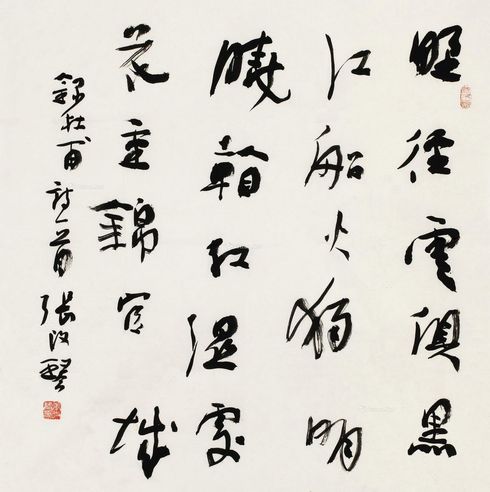 野徑雲俱黑
江船火獨明
曉看紅濕處
花重錦官城
錄杜甫詩一首 張改琴